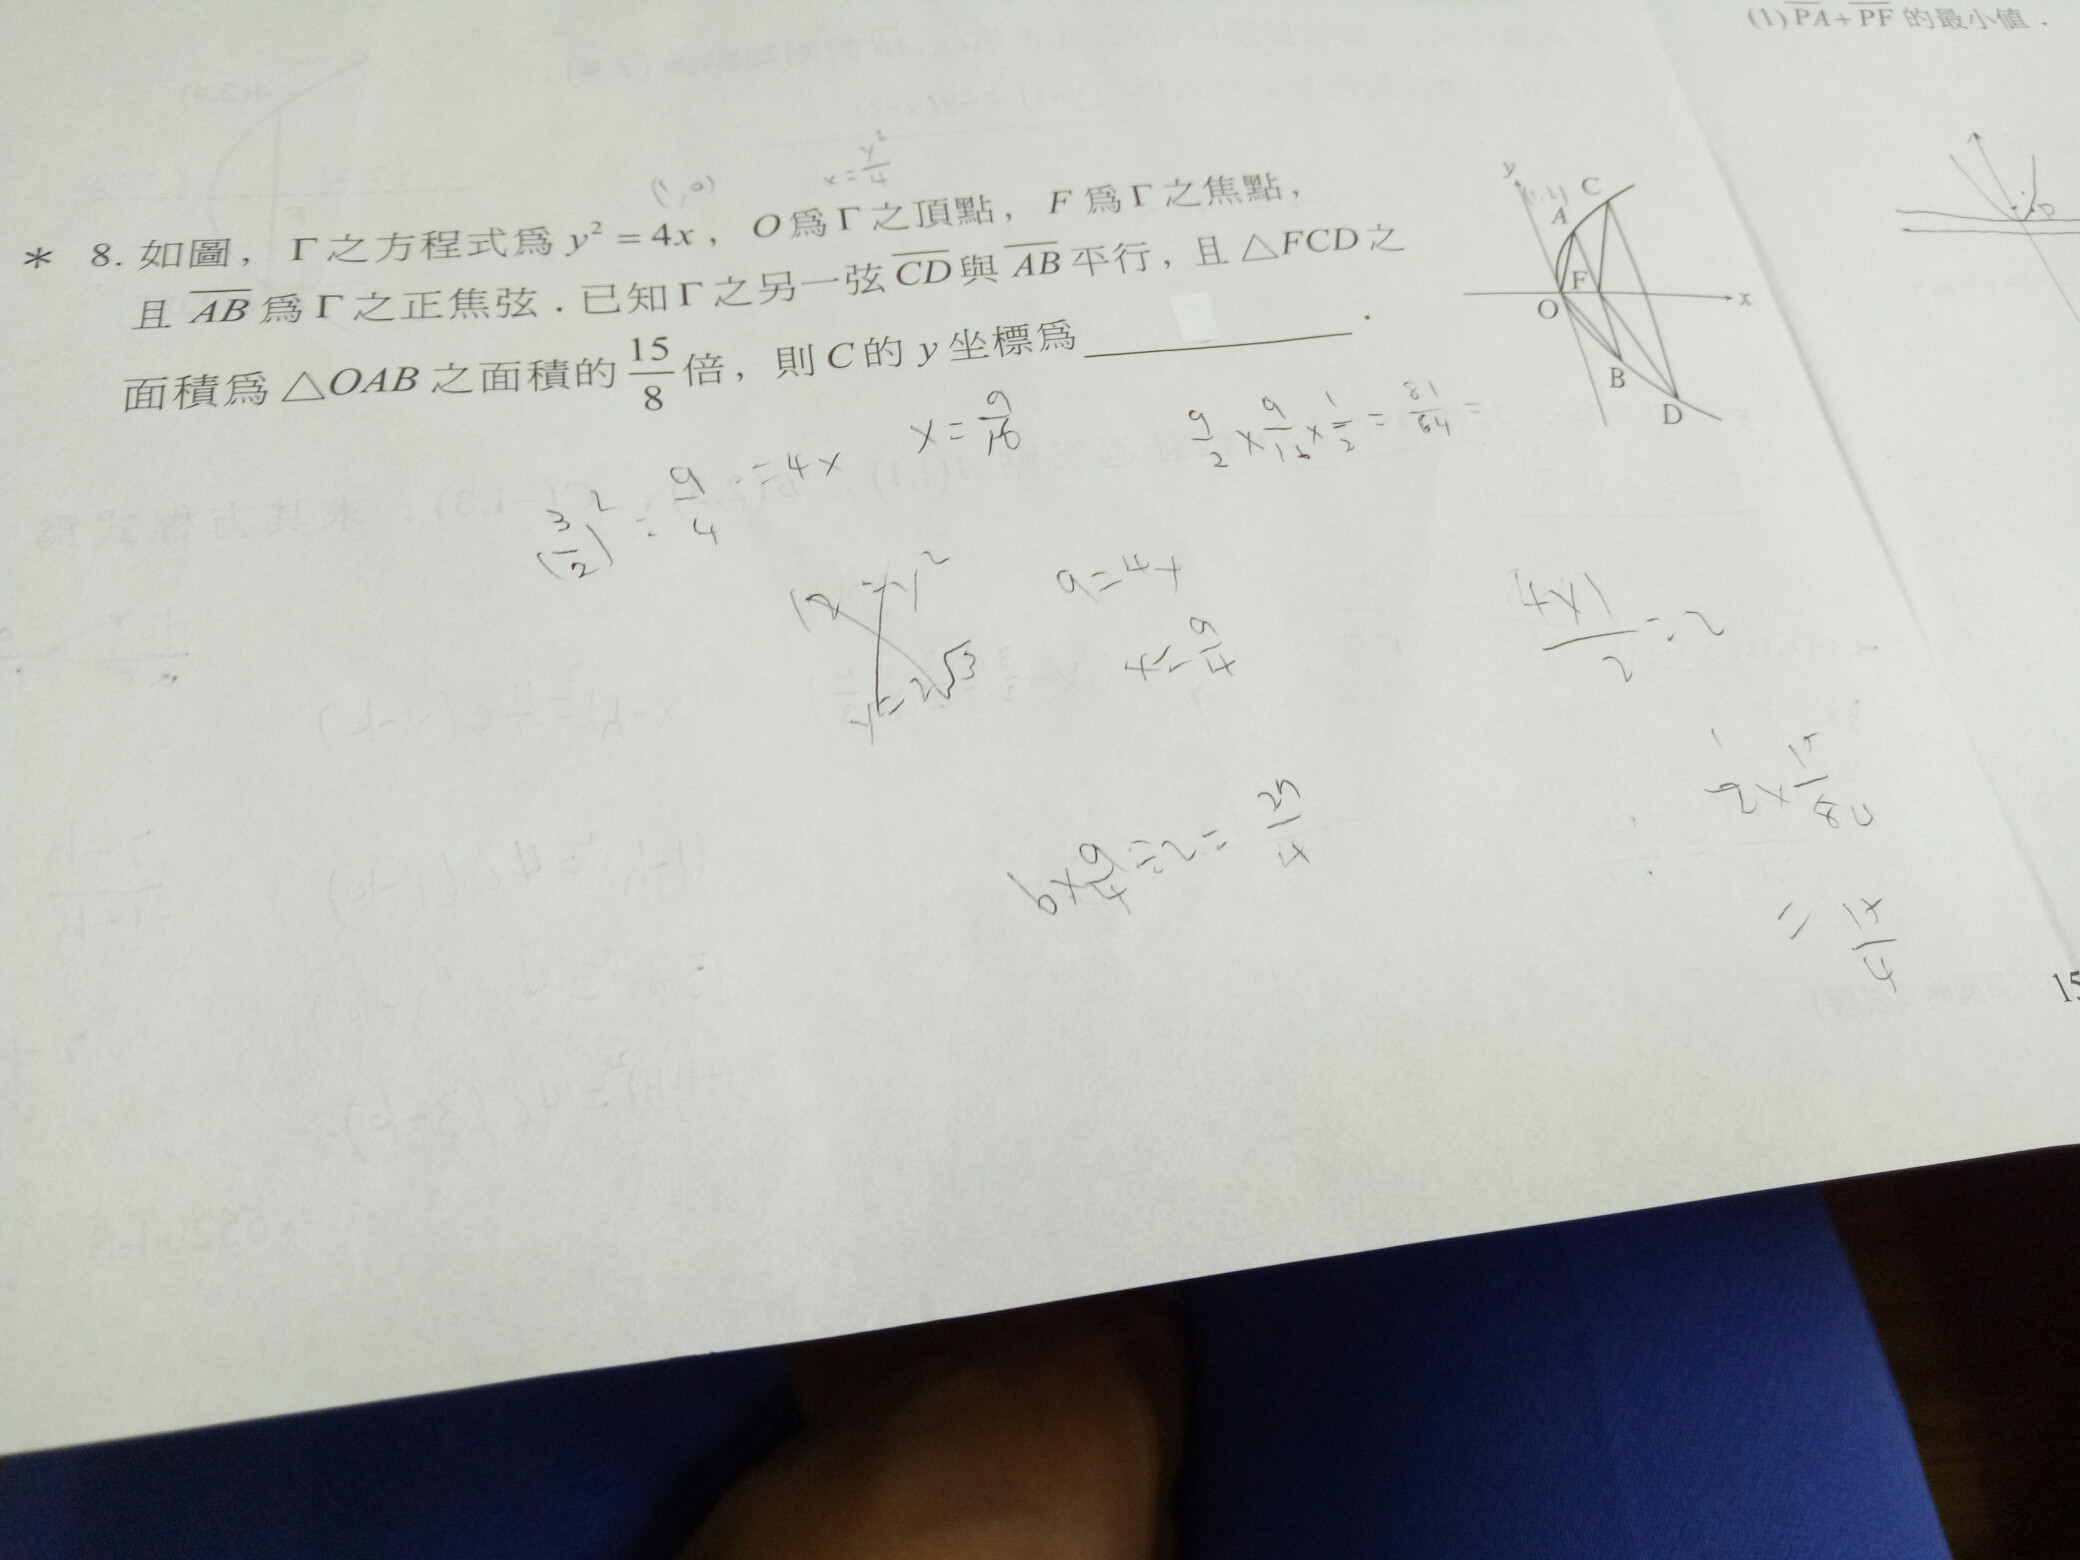 (1) PA + PF 的最小值．
(1,0)
x = y²/4
＊ 8. 如圖，Γ之方程式爲 y² = 4x，O爲Γ之頂點，F爲Γ之焦點，
且 AB 爲Γ之正焦弦．已知Γ之另一弦 CD 與 AB 平行，且 △FCD 之
面積爲 △OAB 之面積的 15/8 倍，則 C 的 y 坐標爲 ．
y
C
A
F
x
O
B
D
x = 9/16
9/2 × 9/16 × 1/2 = 81/64 =
(3/2)² = 9/4 = 4x
12 = y²
y = 2√3
9 = 4x
x = 9/4
4×1/2 = 2
6 × 9/4 ÷ 2 =
= 15/4
15